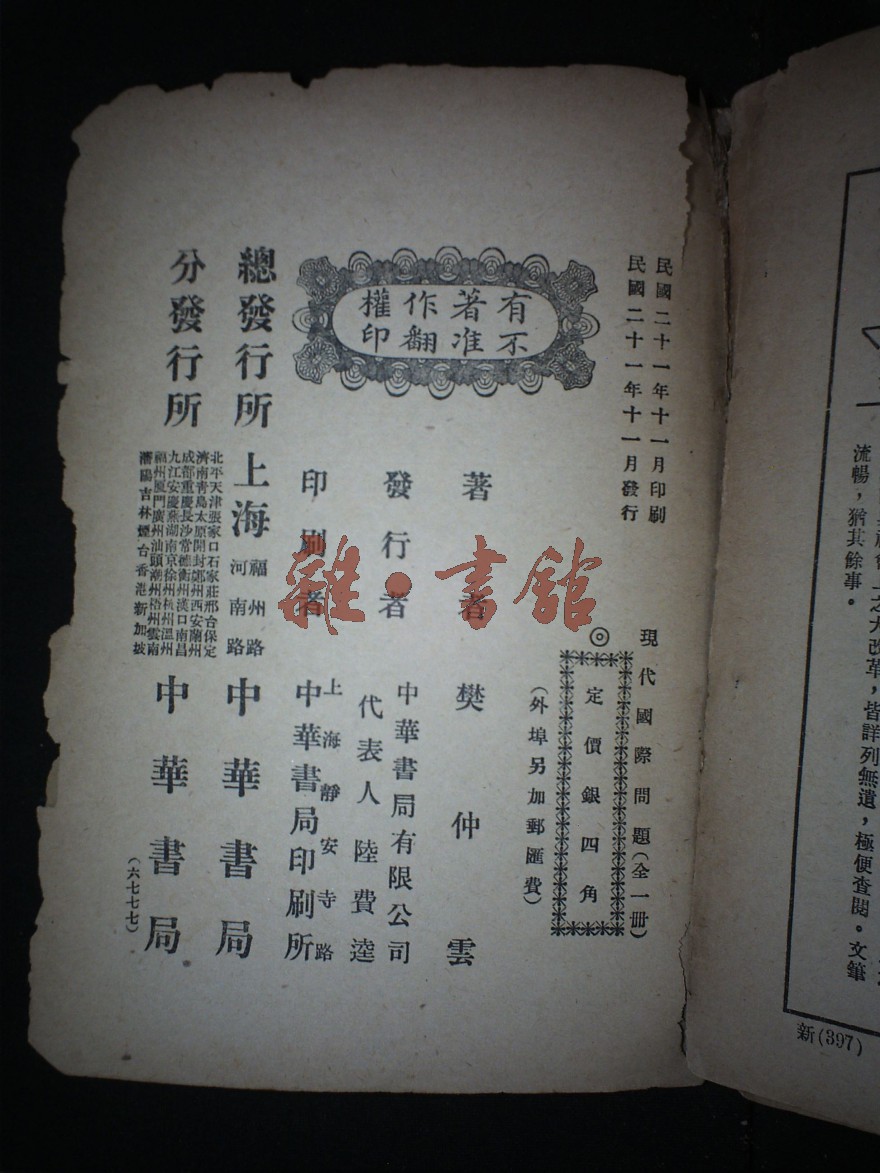 民國二十一年十一月印刷
民國二十一年十一月發行
現代國際問題(全一冊)
◎定價銀四角
(外埠另加郵匯費)
有著作權
不准翻印
著者 樊仲雲
發行者 中華書局有限公司
代表人 陸費逵
上海靜安寺路
印刷者 中華書局印刷所
總發行所 上海 福州路
河南路 中華書局
分發行所 中華書局
北平天津張家口石家莊邢台保定
濟南靑島太原開封鄭州西安蘭州
成都重慶長沙常德衡州漢口南昌
九江安慶蕪湖南京徐州杭州溫州
福州厦門廣州汕頭潮州梧州雲南
瀋陽吉林煙台香港新加坡
(六七七七)
雜·書館
之大改革,皆詳列無遺,極便查閱。文筆
流暢,猶其餘事。
新(397)